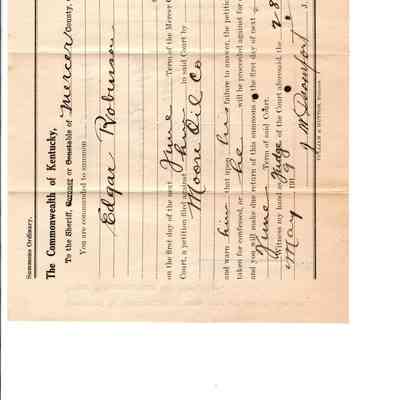 Summons Ordinary.
The Commonwealth of Kentucky,
To the Sheriff, Coroner or Constable of Mercer County,
You are commanded to summon
Edgar Robinson
on the first day of the next June Term of the Mercer
Court, a petition filed against him in said Court by
Moore Oil Co
and warn him that upon his failure to answer, the petition
taken for confessed, or he will be proceeded against for
and you will make due return of this summons on the first day of next
June Term of said Court.
Witness my hand as Judge of the Court aforesaid, the 28
May 191